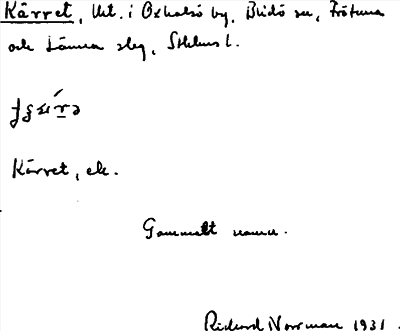 Kärret, Ut. i Oxhalsö by, Blidö sn, Frötuna
och Länna slg, Sthlms l.
Kärret, ek.
Gammalt namn.
Rickard Norrman 1931.